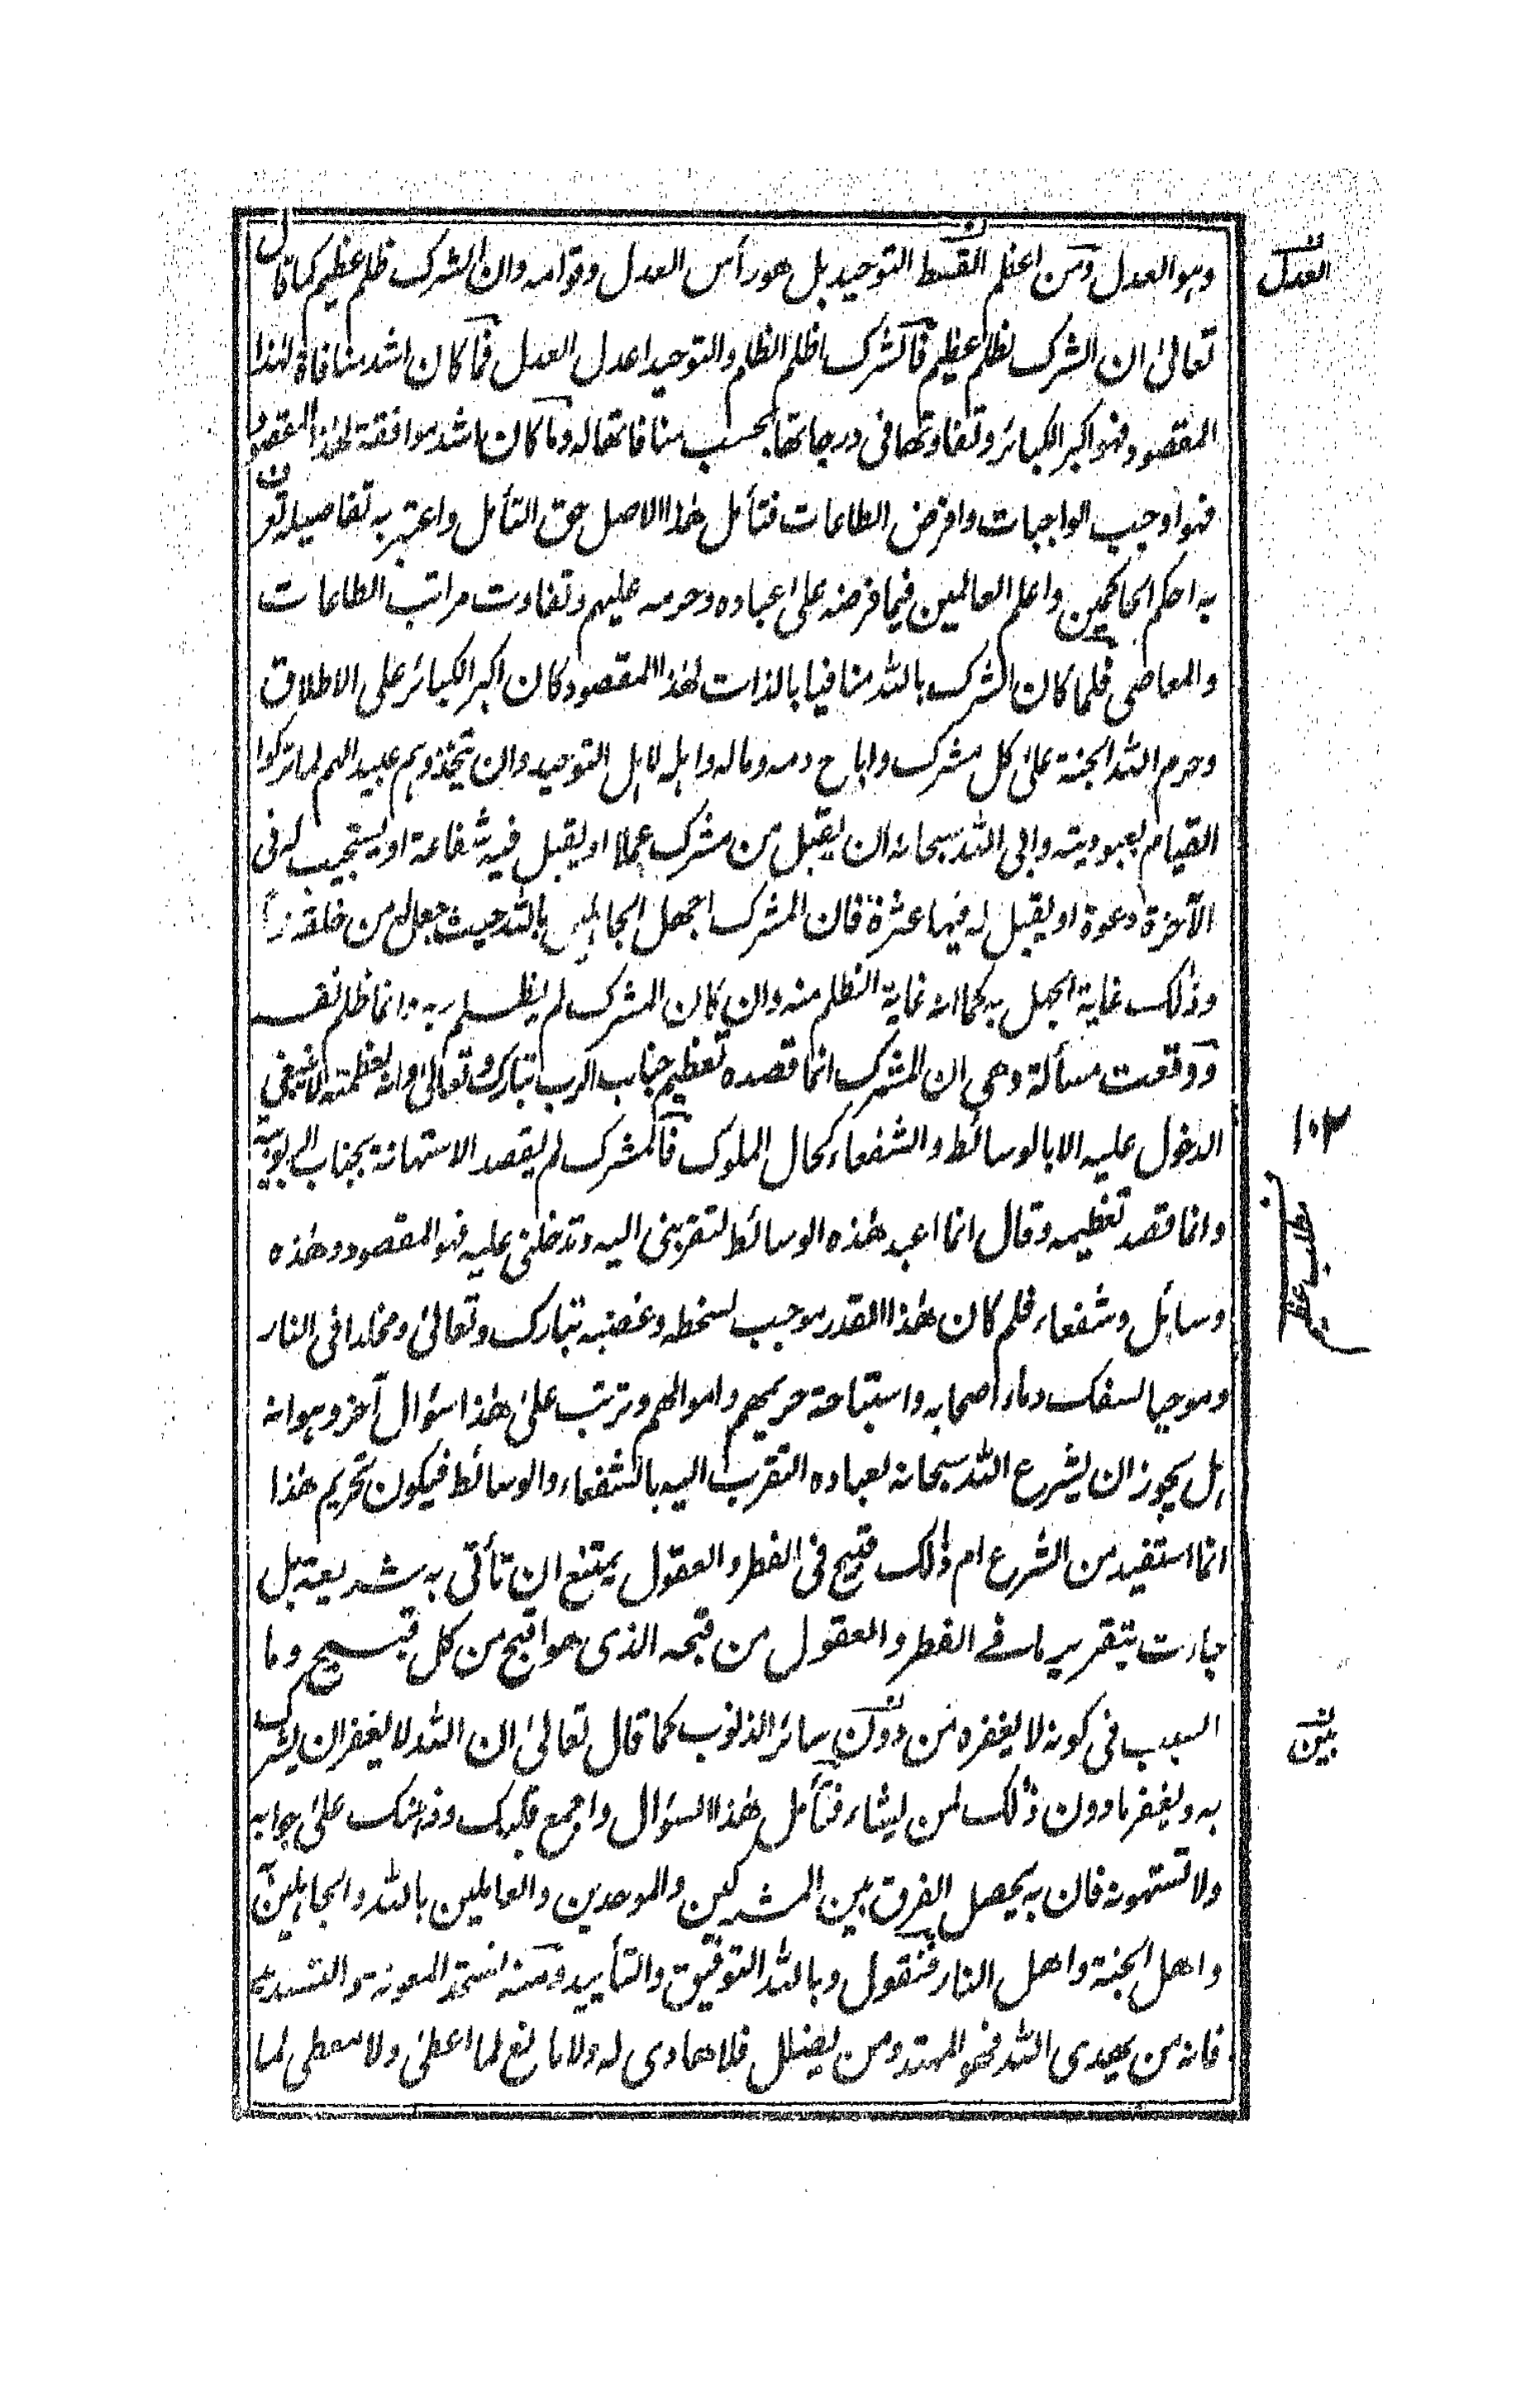 وهو العدل ومن اعظم القسط التوحيد بل هو رأس العدل وقوامه وان الشرك ظلم عظيم كما قال
العدل
تعالى ان الشرك لظلم عظيم فالشرك اظلم الظلم والتوحيد اعدل العدل فما كان اشد منافاة لهذا
المقصود فهو اكبر الكبائر وتفاوتها فى درجاتها بحسب منافاتها له وما كان اشد موافقة لهذا المقصود
فهو اوجب الواجبات وافرض الطاعات فتأمل هذا الاصل حق التأمل واعتبر به تفاصيله تعرف
به احكم الحاكمين واعلم العالمين فيما فرضه على عباده وحرمه عليهم وتفاوت مراتب الطاعات
والمعاصى فلما كان الشرك بالله منافيا بالذات لهذا المقصود كان اكبر الكبائر على الاطلاق
وحرم الله الجنة على كل مشرك واباح دمه وماله واهله لاهل التوحيد وان يتخذوهم عبيدا لهم لما تركوا
القيام بعبوديته وابى الله سبحانه ان يقبل من مشرك عملا او يقبل فيه شفاعة او يستجيب له فى
الآخرة دعوة او يقبل له فيها عثرة فان المشرك اجهل الجاهلين بالله حيث جعل له من خلقه ندا
وذلك غاية الجهل به كما انه غاية الظلم منه وان كان المشرك لم يظلم ربه وانما ظلم نفسه
ووقعت مسألة وهى ان المشرك انما قصده تعظيم جناب الرب تبارك وتعالى وانه لعظمته لا ينبغى
الدخول عليه الا بالوسائط والشفعاء كحال الملوك فالمشرك لم يقصد الاستهانة بجناب الربوبية
١٠٣
وانما قصد تعظيمه وقال انما اعبد هذه الوسائط لتقربنى اليه وتدخلنى عليه فهو المقصود وهذه
وسائل وشفعاء فلم كان هذا القدر موجب لسخطه وغضبه تبارك وتعالى ومخلدا فى النار
وموجبا لسفك دماء اصحابه واستباحة حريمهم واموالهم وترتب على هذا سؤال آخر وهو انه
هل يجوز ان يشرع الله سبحانه لعباده التقرب اليه بالشفعاء والوسائط فيكون تحريم هذا
انما استفيد من الشرع ام ذلك قبيح فى الفطر والعقول يمتنع ان تأتى به شريعة بل
جاءت بتقرير ما فى الفطر والعقول من قبحه الذى هو اقبح من كل قبيح وما
السبب فى كونه لا يغفره من دون سائر الذنوب كما قال تعالى ان الله لا يغفر ان يشرك
بين
به ويغفر ما دون ذلك لمن يشاء فتأمل هذا السؤال واجمع قلبك وذهنك على جوابه
ولا تستهونه فان به يحصل الفرق بين المشركين والموحدين والعاملين بالله والجاهلين
واهل الجنة واهل النار فنقول وبالله التوفيق والتأييد ومنه نستمد المعونة والتسديد
فانه من يهدى الله فهو المهتد ومن يضلل فلا هادى له ولا مانع لما اعطى ولا معطى لما